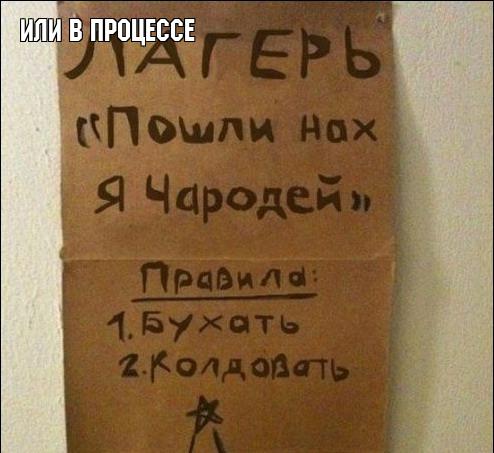 ИЛИ В ПРОЦЕССЕ
ЛАГЕРЬ
«Пошли нах
Я Чародей»
Правила:
1. Бухать
2. Колдовать